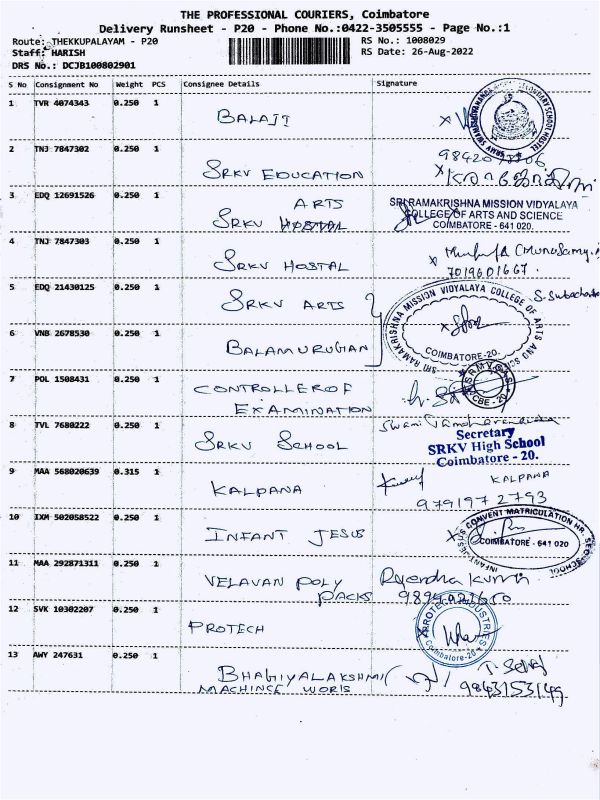 THE PROFESSIONAL COURIERS, Coimbatore
Delivery Runsheet - P20 - Phone No.:0422-3505555 - Page No.:1
Route: THEKKUPALAYAM - P20 RS No.: 1008029
Staff: HARISH RS Date: 26-Aug-2022
DRS No.: DCJB100802901
S No Consignment No Weight PCS Consignee Details Signature
1 TVR 4074343 0.250 1 BALAJI
2 TNJ 7847302 0.250 1 SRKV EDUCATION
3 EDQ 12691526 0.250 1 SRKV ARTS
SRI RAMAKRISHNA MISSION VIDYALAYA
COLLEGE OF ARTS AND SCIENCE
COIMBATORE - 641 020.
4 TNJ 7847303 0.250 1 SRKV HOSTAL
7019601667.
5 EDQ 21430125 0.250 1 SRKV ARTS
SRI RAMAKRISHNA MISSION VIDYALAYA COLLEGE OF ARTS AND SCIENCE
COIMBATORE-20.
6 VNB 2678530 0.250 1 BALAMURUGAN
7 POL 1508431 0.250 1 CONTROLLER OF
EXAMINATION
CBE - 20
8 TVL 7680222 0.250 1 SRKV SCHOOL
Secretary
SRKV High School
Coimbatore - 20.
9 MAA 568020639 0.315 1 KALPANA KALPANA
9791972793
10 IXM 502058522 0.250 1 INFANT JESUS
INFANT JESUS CONVENT MATRICULATION HR. SEC. SCHOOL
COIMBATORE - 641 020
11 MAA 292871311 0.250 1 VELAVAN POLY
PACKS
12 SVK 10302207 0.250 1 PROTECH
PROTECH INDUSTRIES
Coimbatore-20
13 AWY 247631 0.250 1 BHAGIYALAKSHMI
MACHINCE WORIS